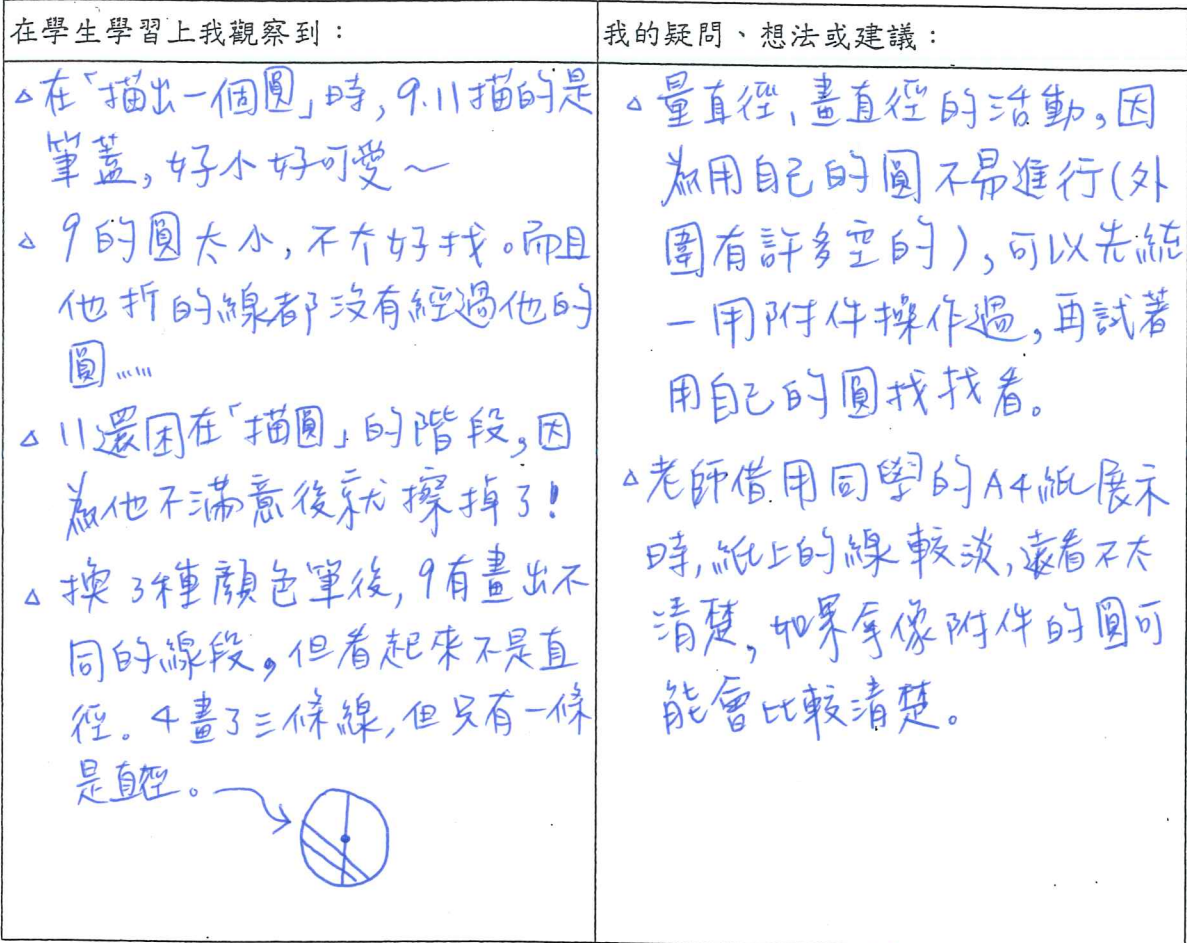 在學生學習上我觀察到：
△在「描出一個圓」時，9.11描的是
筆蓋，好小好可愛～
△ 9的圓太小，不太好找。而且
他折的線都沒有經過他的
圓……
△ 11還困在「描圓」的階段，因
為他不滿意後就擦掉了！
△ 換3種顏色筆後，9有畫出不
同的線段。但看起來不是直
徑。4畫了三條線，但只有一條
是直徑。
我的疑問、想法或建議：
△ 量直徑、畫直徑的活動，因
為用自己的圓不易進行(外
圍有許多空的)，可以先統
一用附件操作過，再試著
用自己的圓找找看。
△老師借用同學的A4紙展示
時，紙上的線較淡，遠看不太
清楚，如果拿像附件的圓可
能會比較清楚。